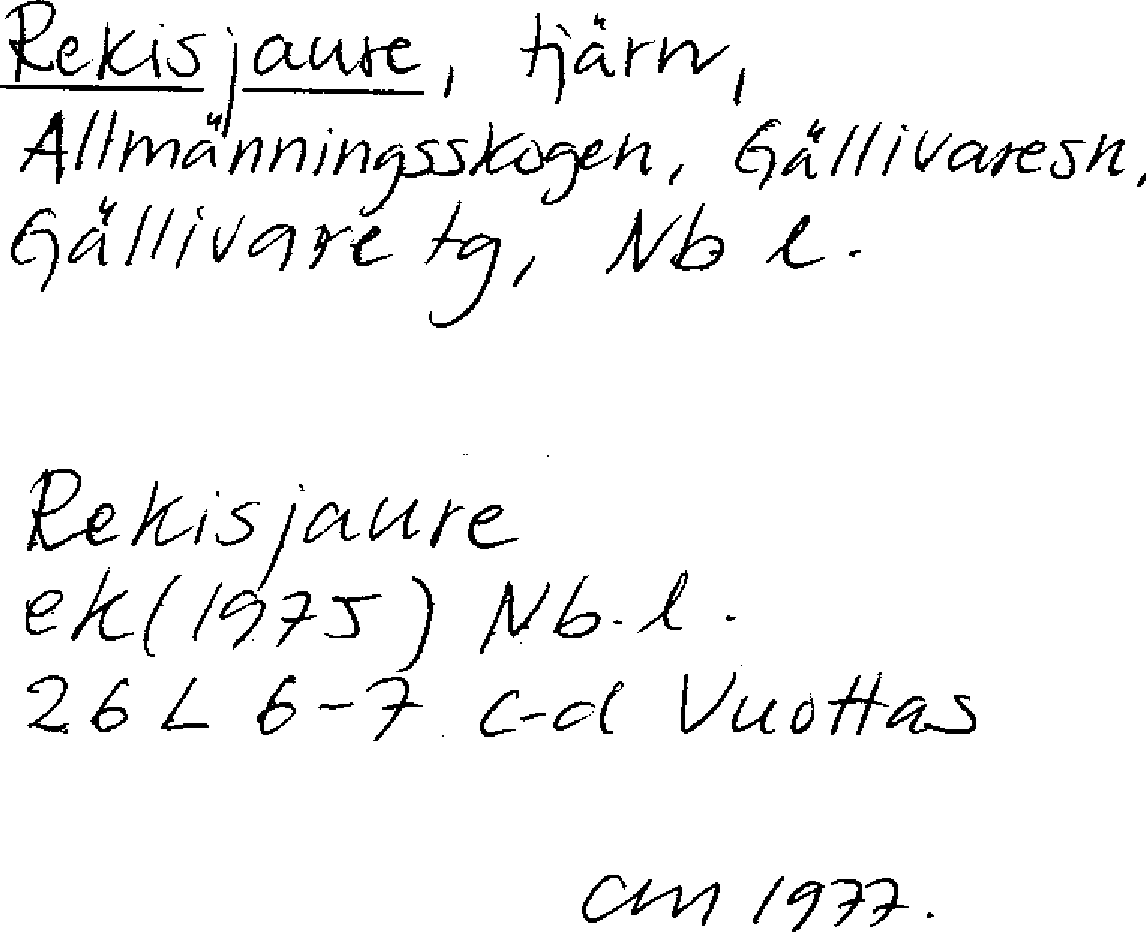 Rekisjaure, tjärn,
Allmänningsskogen, Gällivaresn,
Gällivare tg, Nb l.
Rekisjaure
ek(1975) Nb.l.
26 L 6-7 c-d Vuottas
CM 1977.